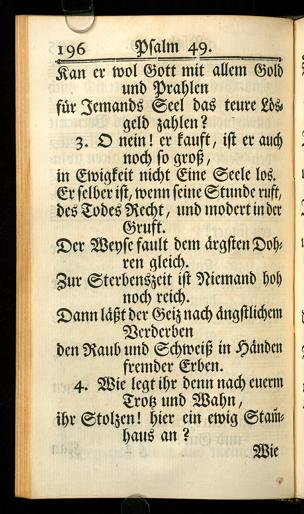 196 Psalm 49.
Kan er wol Gott mit allem Gold
und Prahlen
für Jemands Seel das teure Lös-
geld zahlen?
3. O nein! er kauft, ist er auch
noch so groß,
in Ewigkeit nicht Eine Seele los.
Er selber ist, wenn seine Stunde ruft,
des Todes Recht, und modert in der
Gruft.
Der Weyse fault dem ärgsten Doh-
ren gleich.
Zur Sterbenszeit ist Niemand hoh
noch reich.
Dann läßt der Geiz nach ängstlichem
Verderben
den Raub und Schweiß in Händen
fremder Erben.
4. Wie legt ihr denn nach euerm
Trotz und Wahn,
ihr Stolzen! hier ein ewig Stam̃-
haus an?
Wie